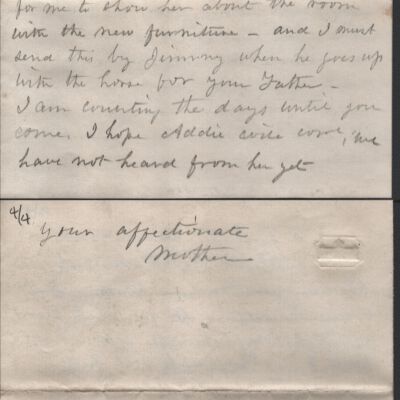 for me to show her about the room
with the new furniture – and I must
send this by Jimmy when he goes up
with the horse for your Father –
I am counting the days until you
come, I hope Addie will come, we
have not heard from her yet
4/4
your affectionate
Mother